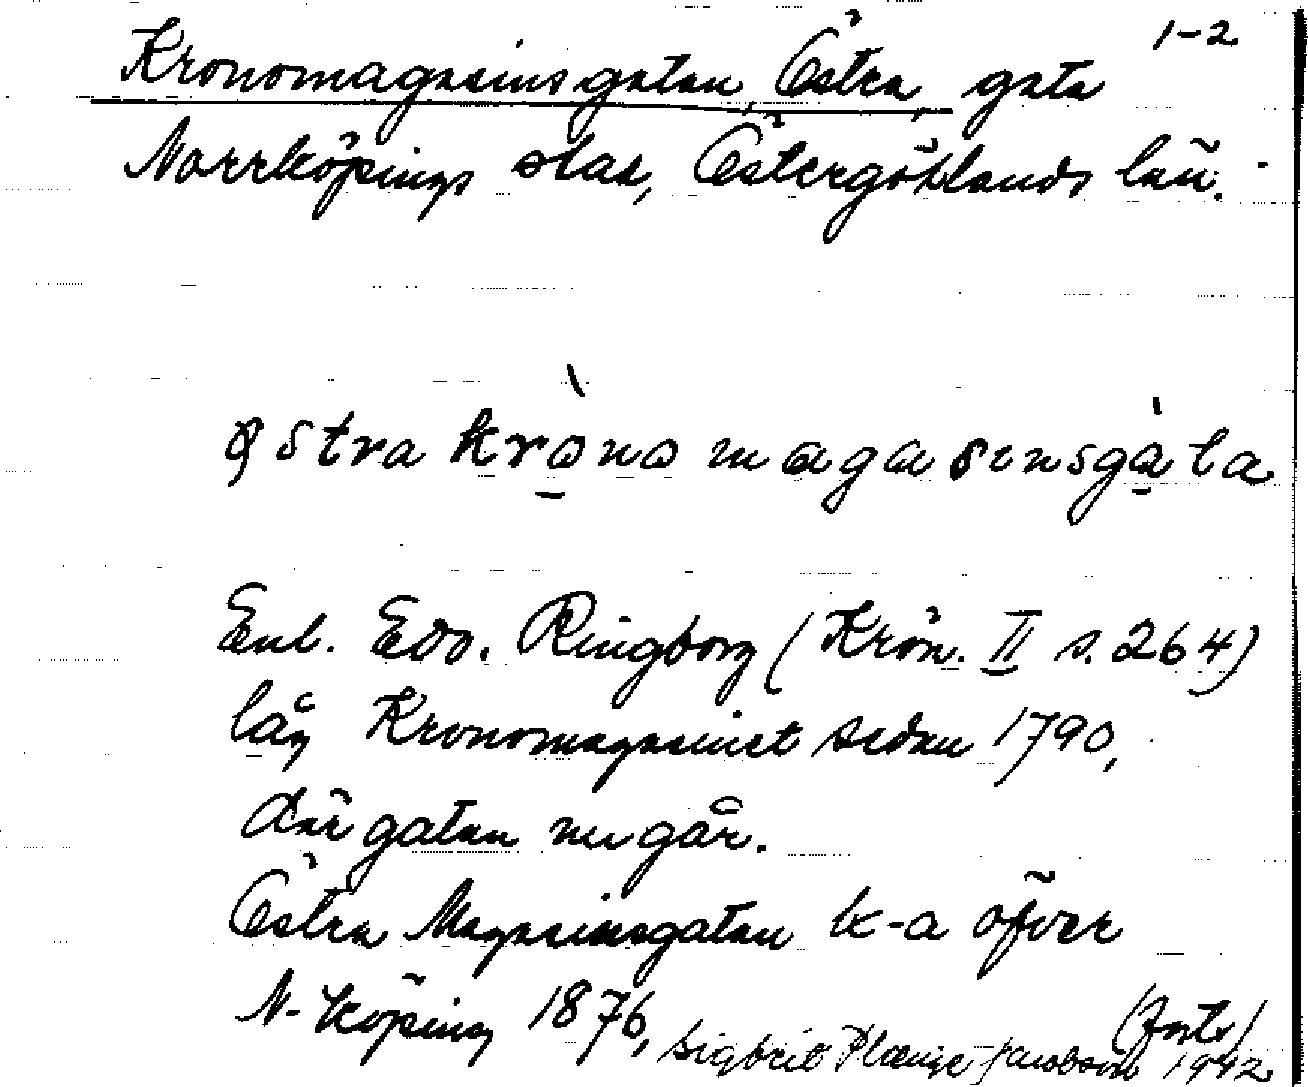 1-2
Kronomagasinsgatan, Östra, gata
Norrköpings stad, Östergötlands län.
østra krò̱no magasinsgà̱ta
Enl. Edv. Ringborg (Krön. II s. 264)
låg Kronomagasinet sedan 1790,
där gatan nu går.
Östra Magasinsgatan k-a öfver
N-köping 1876,
Sigbrit Plænge Jacobson 1942